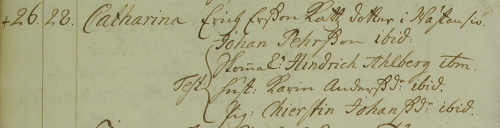 +26. 22. Catharina Erich Ersson Ratz dotter i
Johan Pehrsson ibid.
Hindrich Ahlberg ibm.
Test: Hust: Karin Andersd: ibid.
Pig: Chierstin Johansd: ibid.